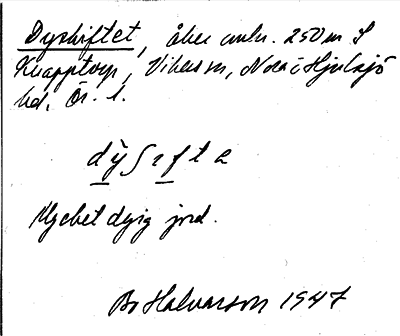 Dyskiftet, åker omkr. 250 m S
Knapptorp, Vikers sn, Nora o Hjulsjö
hd, Ör. l.
dỳʃıftɛ
Mycket dyig jord.
Bo Halvarson 1947